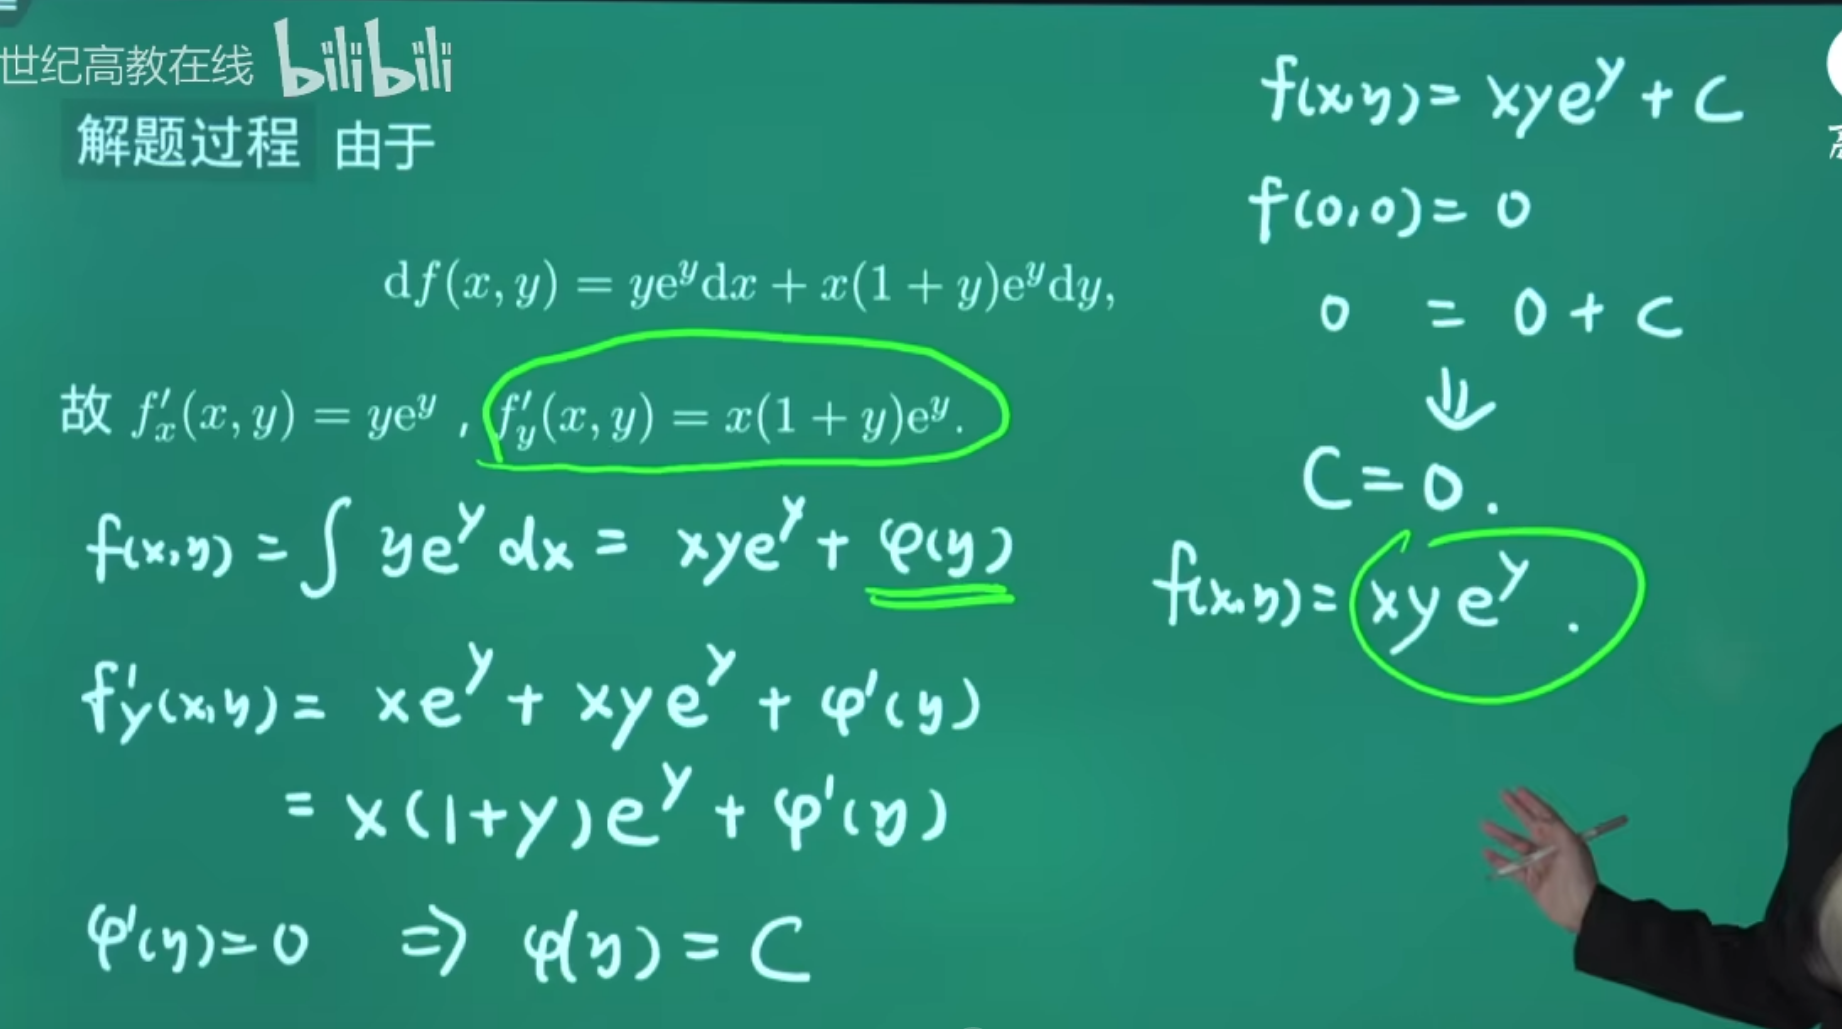 世纪高教在线 bilibili
解题过程 由于
df(x, y) = ye^y dx + x(1 + y)e^y dy,
故 f'_x(x, y) = ye^y , f'_y(x, y) = x(1 + y)e^y.
f(x,y) = ∫ ye^y dx = xye^y + φ(y)
f'_y(x,y) = xe^y + xye^y + φ'(y)
= x(1+y)e^y + φ'(y)
φ'(y) = 0 ⇒ φ(y) = C
f(x,y) = xye^y + C
f(0,0) = 0
0 = 0 + C
⇓
C = 0.
f(x,y) = xye^y.